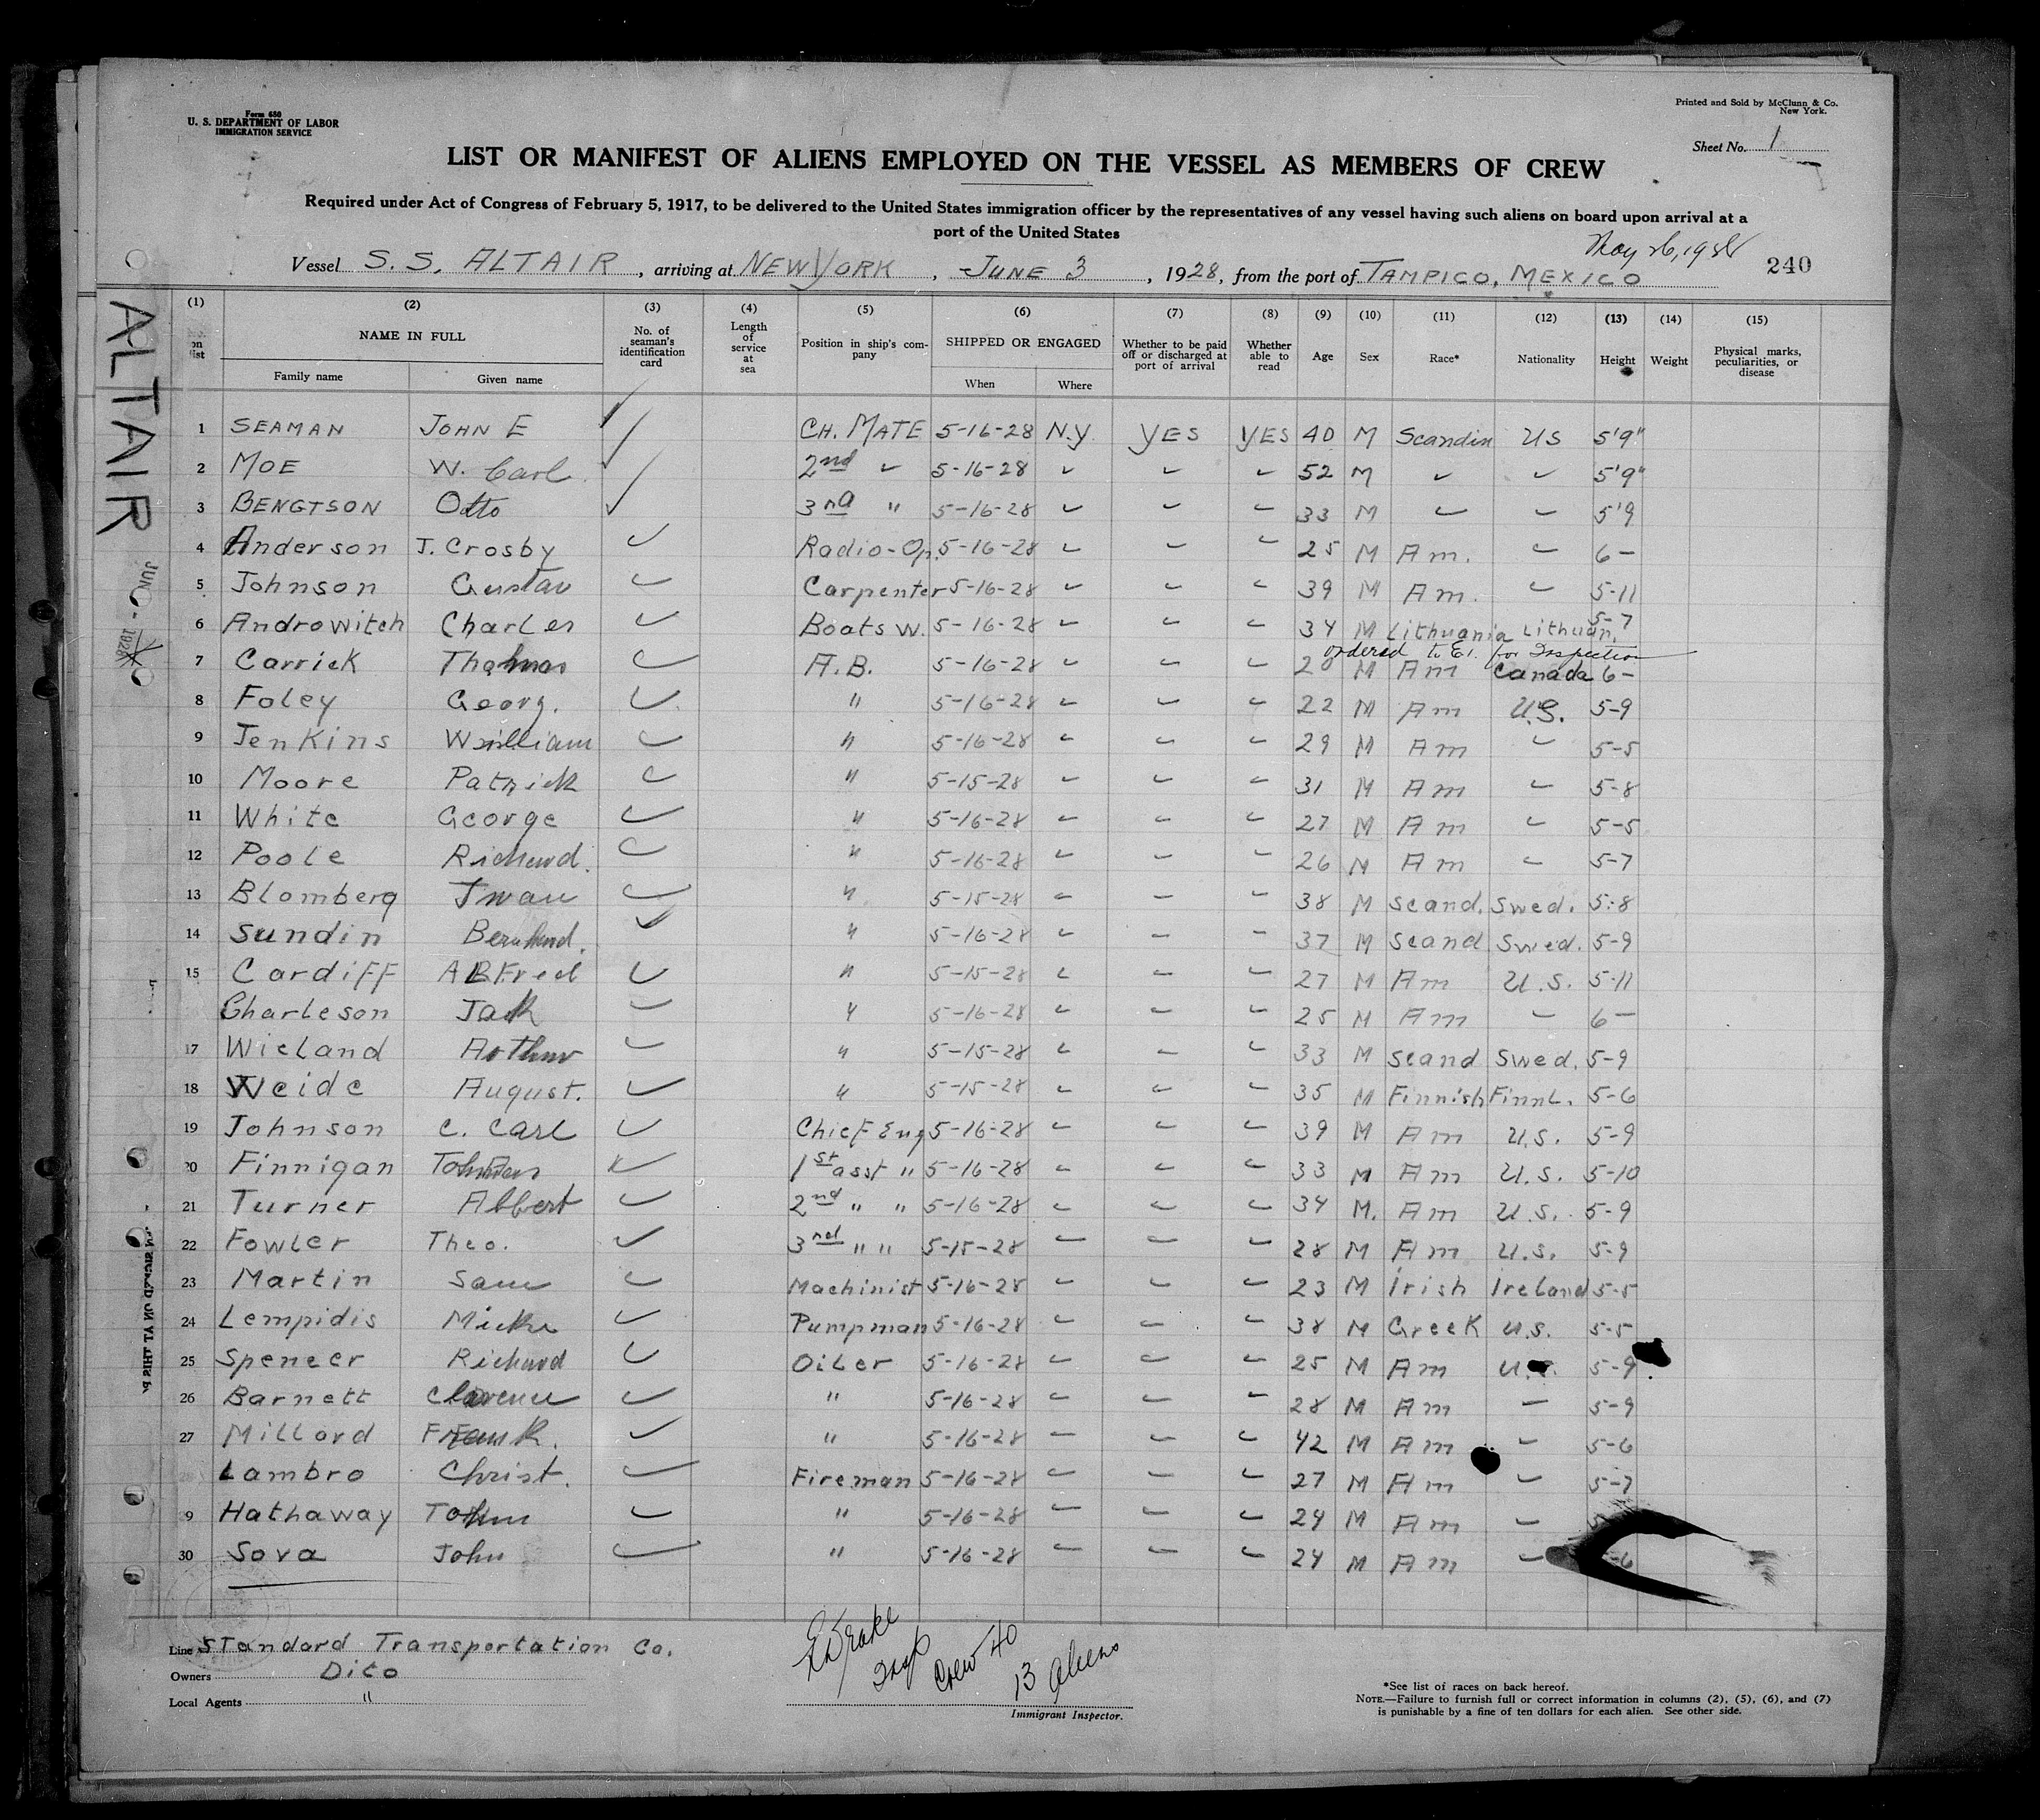 Form 680
U. S. DEPARTMENT OF LABOR
IMMIGRATION SERVICE
Printed and Sold by McClunn & Co.
New York.
Sheet No. 1
LIST OR MANIFEST OF ALIENS EMPLOYED ON THE VESSEL AS MEMBERS OF CREW
Required under Act of Congress of February 5, 1917, to be delivered to the United States immigration officer by the representatives of any vessel having such aliens on board upon arrival at a
port of the United States
May 26, 1928
Vessel S.S. ALTAIR, arriving at NEW YORK, JUNE 3, 1928, from the port of TAMPICO, MEXICO 240
ALTAIR
JUN 1928
(1) (2) (3) (4) (5) (6) (7) (8) (9) (10) (11) (12) (13) (14) (15)
on list NAME IN FULL Family name Given name No. of seaman's identification card Length of service at sea Position in ship's company SHIPPED OR ENGAGED When Where Whether to be paid off or discharged at port of arrival Whether able to read Age Sex Race* Nationality Height Weight Physical marks, peculiarities, or disease
1 SEAMAN JOHN E CH. MATE 5-16-28 N.Y. YES YES 40 M Scandin US 5'9"
2 MOE W. Carl 2nd 5-16-28 52 M 5'9"
3 BENGTSON Otto 3rd " 5-16-28 33 M 5'9
4 Anderson J. Crosby Radio-Op. 5-16-28 25 M Am. 6-
5 Johnson Gustav Carpenter 5-16-28 39 M Am. 5-11
6 Androwitch Charles Boats w. 5-16-28 34 M Lithuania Lithuan. 5-7
ordered to E.I. for Inspection
7 Carrick Thomas A.B. 5-16-28 20 M Am Canada 6-
8 Foley Georg. " 5-16-28 22 M Am U.S. 5-9
9 Jenkins William " 5-16-28 29 M Am 5-5
10 Moore Patrick " 5-15-28 31 M Am 5-8
11 White George " 5-16-28 27 M Am 5-5
12 Poole Richard. " 5-16-28 26 M Am 5-7
13 Blomberg Iwan " 5-15-28 38 M Scand. Swed. 5-8
14 Sundin Bernhard. " 5-16-28 37 M Scand Swed. 5-9
15 Cardiff Alfred " 5-15-28 27 M Am U.S. 5-11
Charleson Jack " 5-16-28 25 M Am 6-
17 Wieland Arthur " 5-15-28 33 M Scand Swed. 5-9
18 Weide August. " 5-15-28 35 M Finnish Finnl. 5-6
19 Johnson C. Carl Chief Eng 5-16-28 39 M Am U.S. 5-9
20 Finnigan 1st asst " 5-16-28 33 M Am U.S. 5-10
21 Turner Albert 2nd " " 5-16-28 34 M. Am U.S. 5-9
22 Fowler Theo. 3rd " " 5-15-28 28 M Am U.S. 5-9
23 Martin Sam Machinist 5-16-28 23 M Irish Ireland 5-5
24 Lempidis Mike Pumpman 5-16-28 38 M Greek U.S. 5-5
25 Spencer Richard Oiler 5-16-28 25 M Am 5-9
26 Barnett Clarence " 5-16-28 28 M Am 5-9
27 Millard Frank. " 5-16-28 42 M Am 5-6
Lambro Christ. Fireman 5-16-28 27 M Am 5-7
9 Hathaway John " 5-16-28 24 M Am
30 Sova John " 5-16-28 24 M Am
Line Standard Transportation Co.
Owners Dito
Local Agents "
Drake
Insp
Crew 40
13 Aliens
Immigrant Inspector.
*See list of races on back hereof.
NOTE.—Failure to furnish full or correct information in columns (2), (5), (6), and (7)
is punishable by a fine of ten dollars for each alien. See other side.